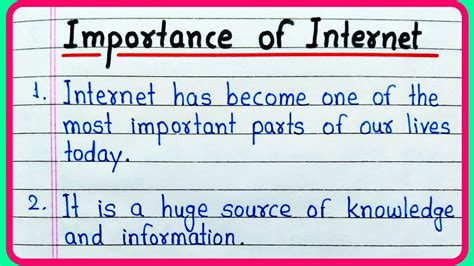 Importance of Internet
1. Internet has become one of the
most important parts of our lives
today.
2. It is a huge source of knowledge
and information.